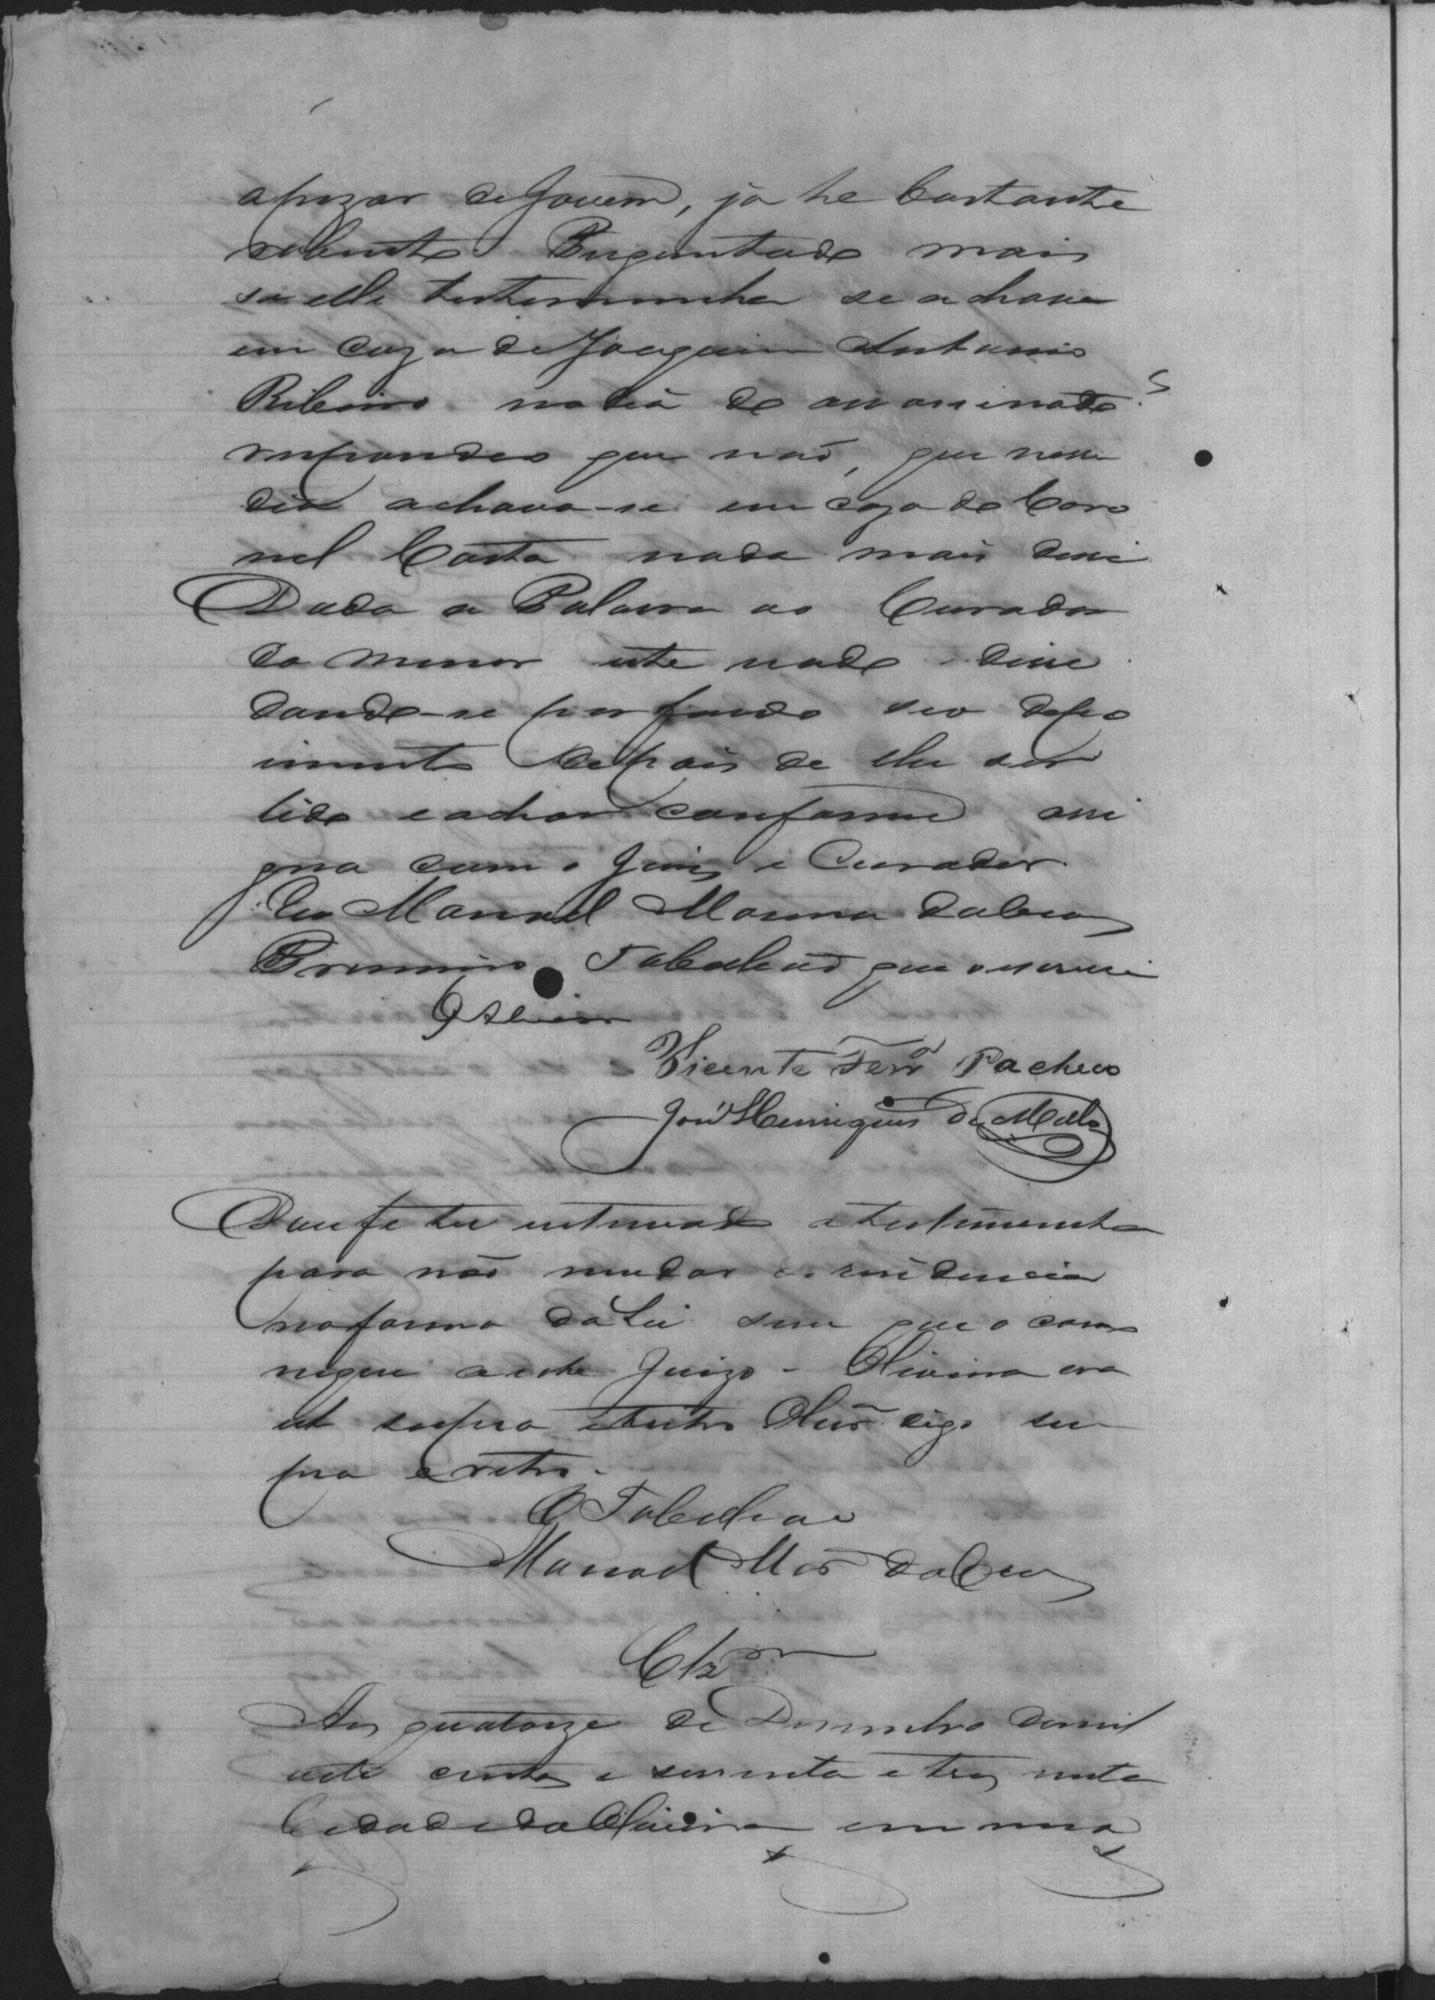 apezar de Jovem, ja he bastante
robusto. Perguntado mais
se elle testemunha se achava
em caza de Joaquim Antonio
Ribeiro no dia do assassinato?
respondeo que não, que nesse
dia achava-se em caza do Coro
nel Costa nada mais disse
Dada a Palavra ao Curador
do menor este nada disse
dando-se por findo seo depo
imento depois de lhe ser
lido e achar conforme assi
gna com o Juiz e Curador
Eu Manoel Martins da Cruz
Primeiro Tabelião que o escrevi
Vicente Ferrª Pacheco
José Henriques de Mello
Dou fé ter intimado a testemunha
para não mudar de residencia
na forma da Lei sem que o com
nique a este Juizo - Oliveira era
ut supra e retro digo su
pra e retro.
O Tabelião
Manoel da Cruz
Clzᵐ
Aos quatorze de Dezembro de mil
oito centos e secenta e trez nesta
Cidade da Oliveira em meo